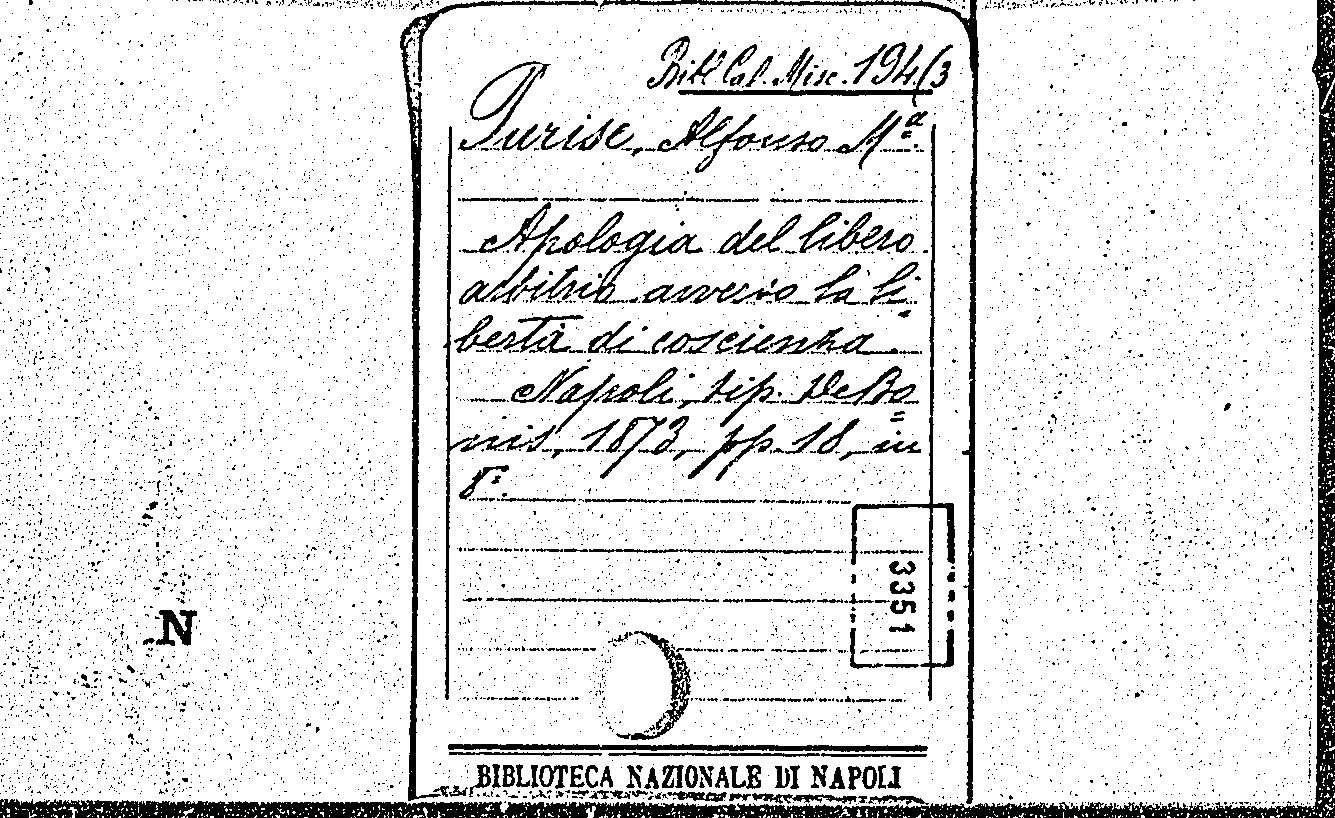 Bibl. Cal. Misc. 194(3
Turise, Alfonso Mª.
Apologia del libero
arbitrio avverso la li-
bertà di coscienza.
Napoli, tip. De Bo=
nis, 1873, pp. 18, in
8º.
3351
N
BIBLIOTECA NAZIONALE DI NAPOLI